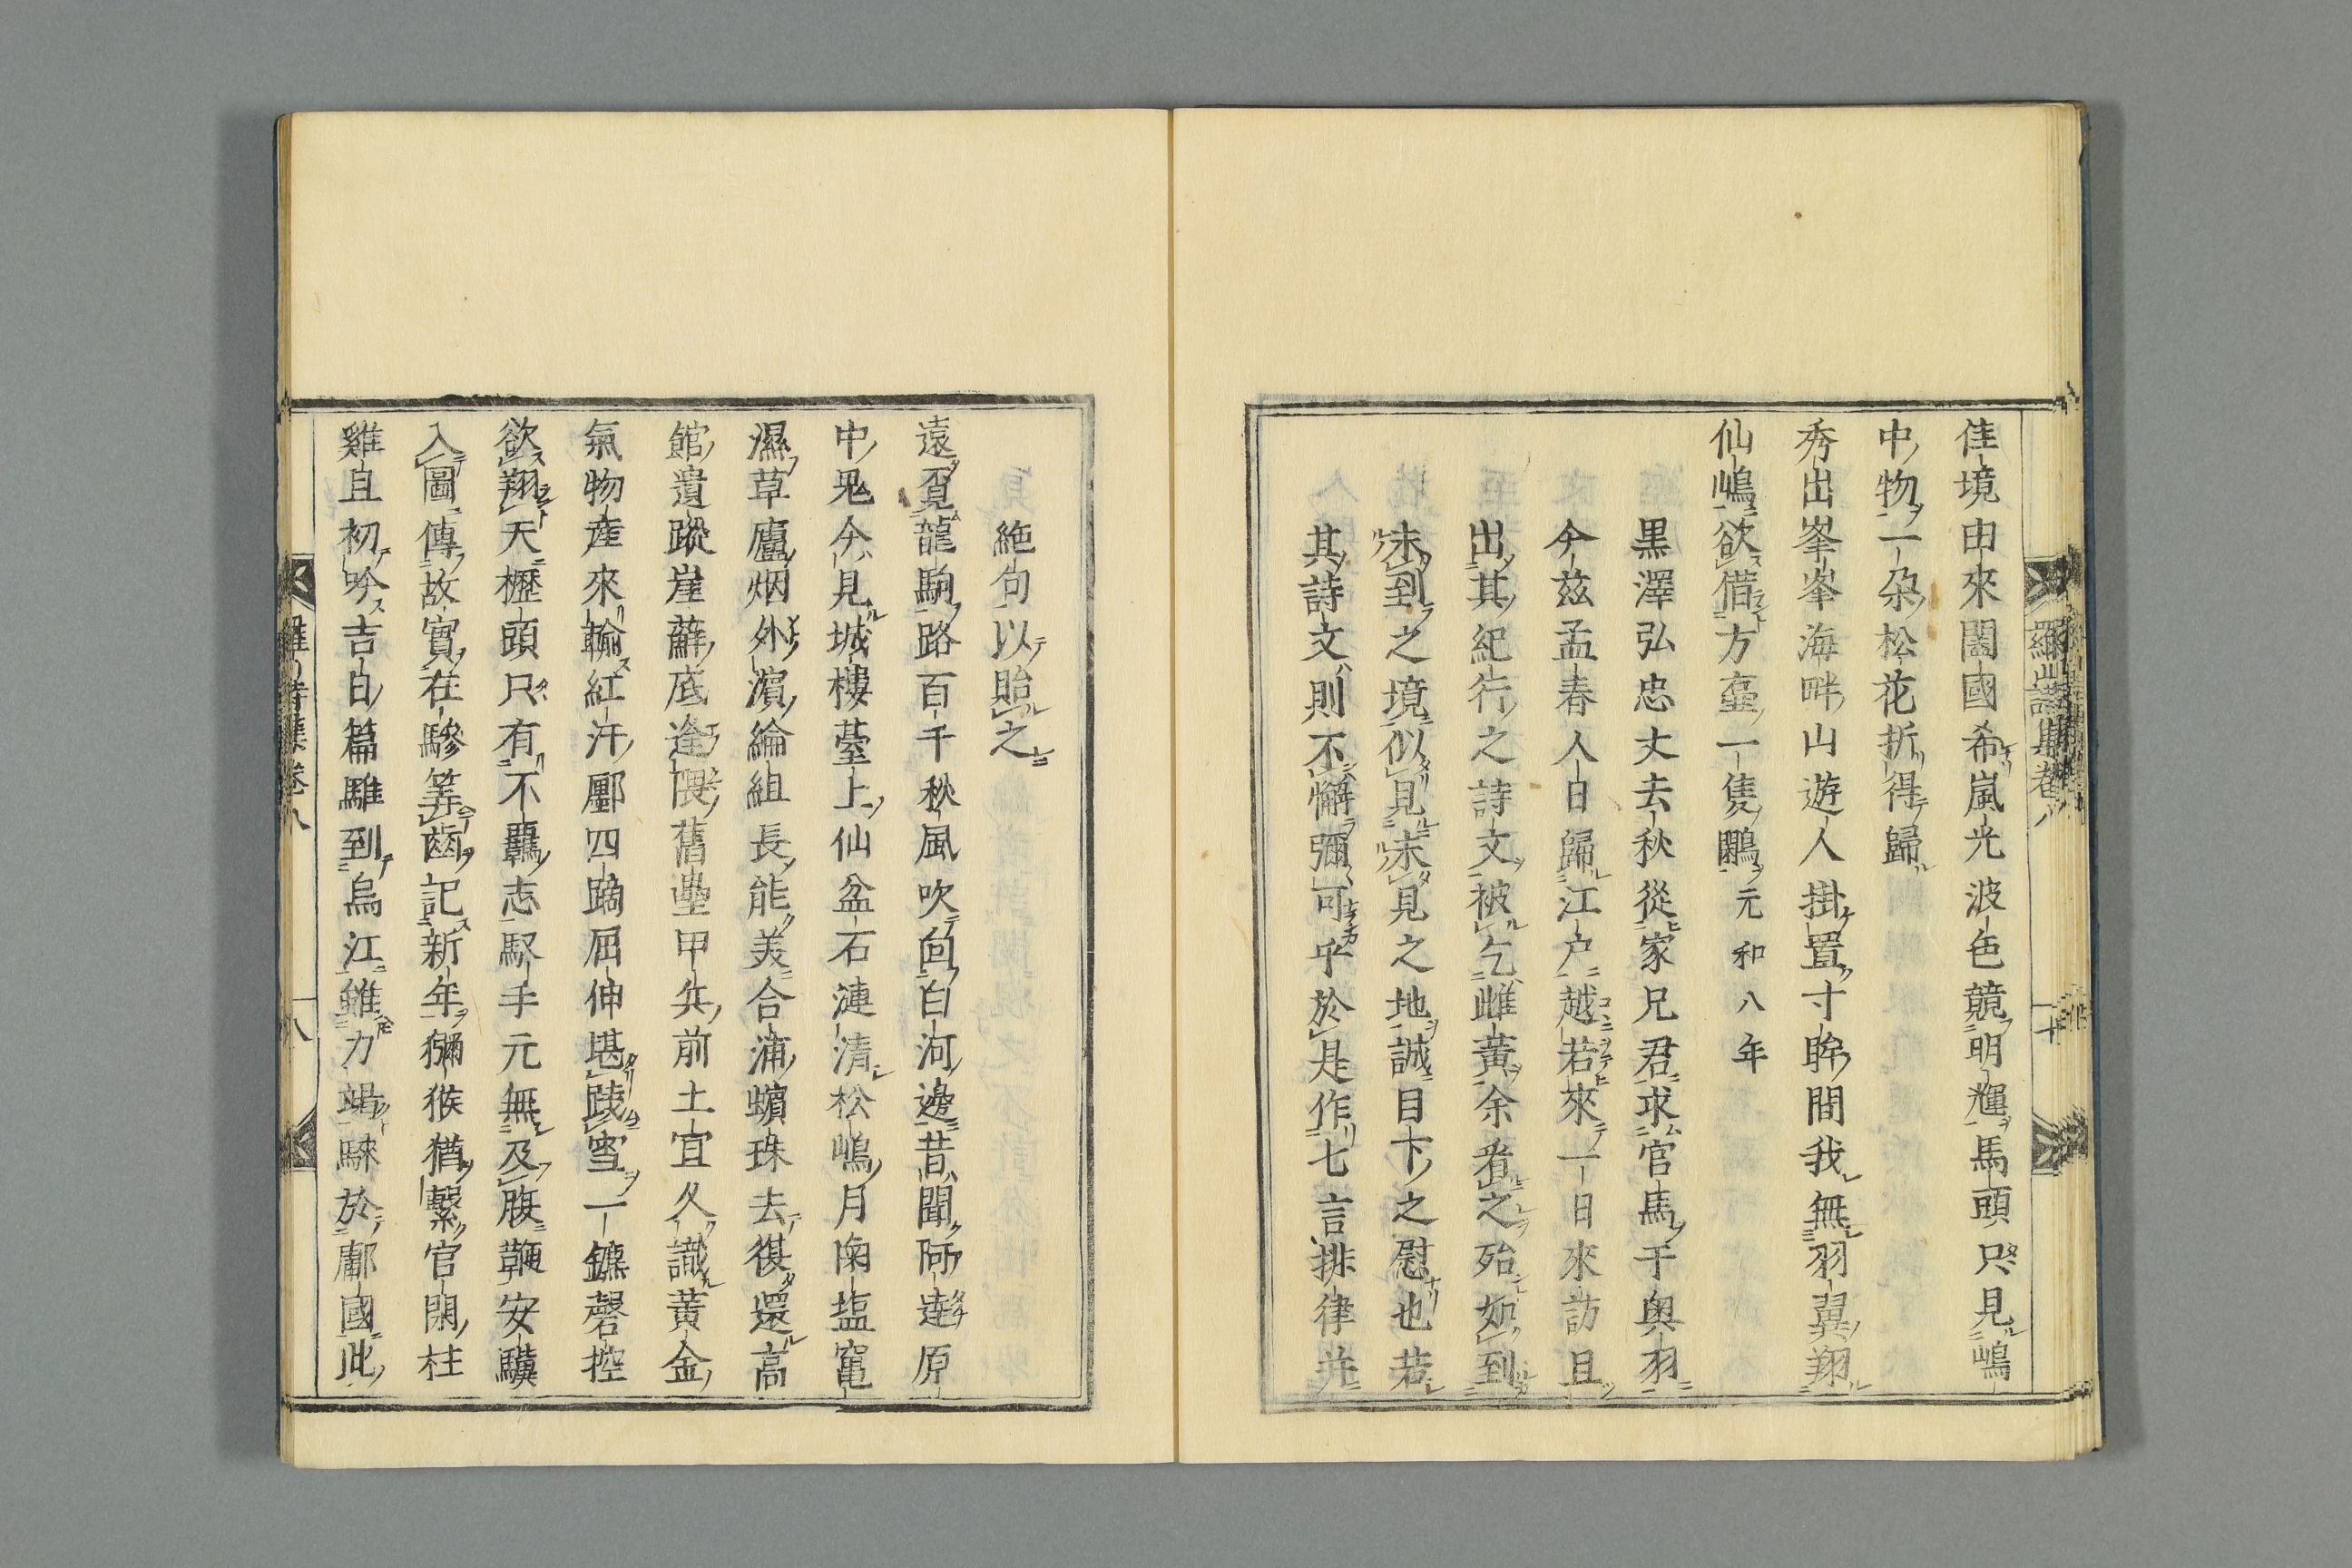 佳境由來闔國希嵐光波色競明輝馬頭只見嶋
中物一朵松花折得歸
秀出峯峯海畔山遊人掛置寸眸間我無羽翼翔
仙嶋欲借方壺一隻鷴元和八年
黒澤弘忠丈去秋從家兄君求官馬于奥羽
今茲孟春人日歸江户越若來一日來訪且
出其紀行之詩文被乞雌黄余看之殆如到
未到之境似見未見之地誠目下之慰也若
其詩文則不懈彌可乎於是作七言排律并
絶句以貽之
遠覔龍駒路百千秋風吹白河邊昔聞阿達原
中鬼今見城樓臺上仙盆石漣清松嶋月南塩竃
濕草廬烟外濱綸組長能美合浦蠙珠去復還高
館遺蹤崖蘚底逢隈舊壘甲兵前土宜久識黄金
氣物產來輸紅汗鄽四蹄屈伸堪踐雪一鑣磬控
欲翔天櫪頭只有不羈志馭手元無及腹鞭安驥
入圖傳故實在驂筭齒記新年獼猴猶繋官閑柱
雞且初吟吉日篇騅到烏江雖力竭騋於鄘國此
羅山詩集卷八